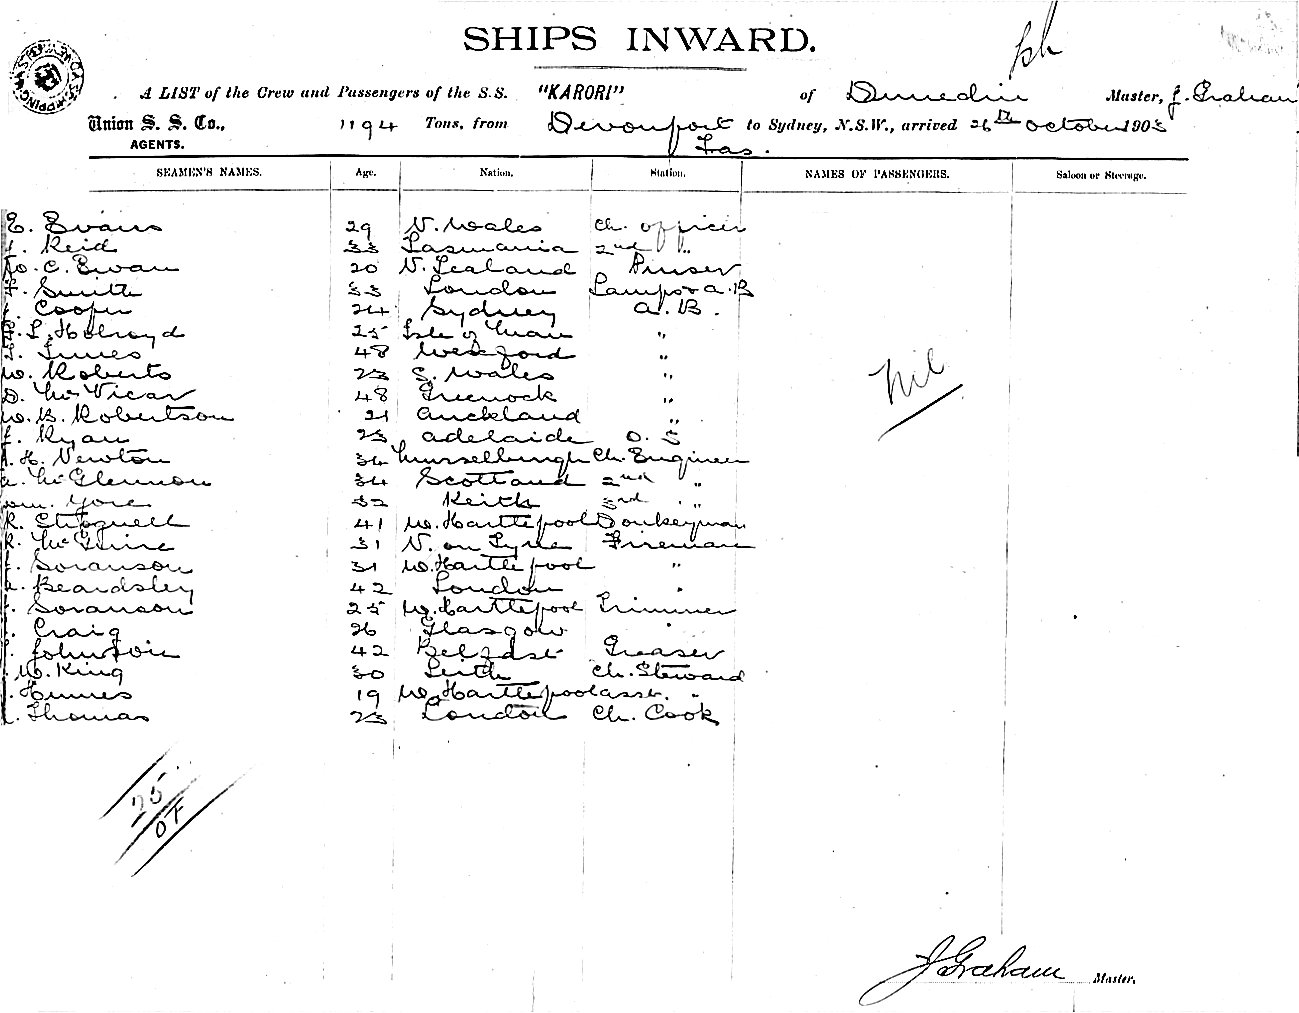 SHIPS INWARD.
A LIST of the Crew and Passengers of the S.S. "KARORI" of Dunedin Master, J. Graham
Union S. S. Co., 1194 Tons, from Devonport to Sydney, N.S.W., arrived 26th October 1903
AGENTS. Tas.
SEAMEN'S NAMES. Age. Nation. Station. NAMES OF PASSENGERS. Saloon or Steerage.
E. Evans 29 N. Wales Ch. Officer
Reid 33 Tasmania 2nd "
C. Ewan 20 N. Zealand Purser
Smith 33 London Lamps & A.B
Cooper 24 Sydney A.B.
L. Holroyd 25 Isle of Man "
Innes 48 Wexford "
W. Roberts 23 S. Wales "
D. McVicar 48 Greenock "
W. B. Robertson 21 Auckland "
Ryan 23 Adelaide O. S
H. Newton 34 Musselburgh Ch. Engineer
A. McGlennon 34 Scotland 2nd "
Wm. Yore 32 Keith 3rd "
R. 41 W. Hartlepool Donkeyman
R. 31 N. on Tyne Fireman
Soranson 31 W. Hartlepool "
Beardsley 42 London "
Soranson 25 W. Hartlepool Trimmer
Craig 26 Glasgow "
Johnston 42 Belfast Greaser
W. King 30 Leith Ch. Steward
Hunnes 19 W. Hartlepool Asst. "
Thomas 23 London Ch. Cook
Nil
25
J Graham Master.